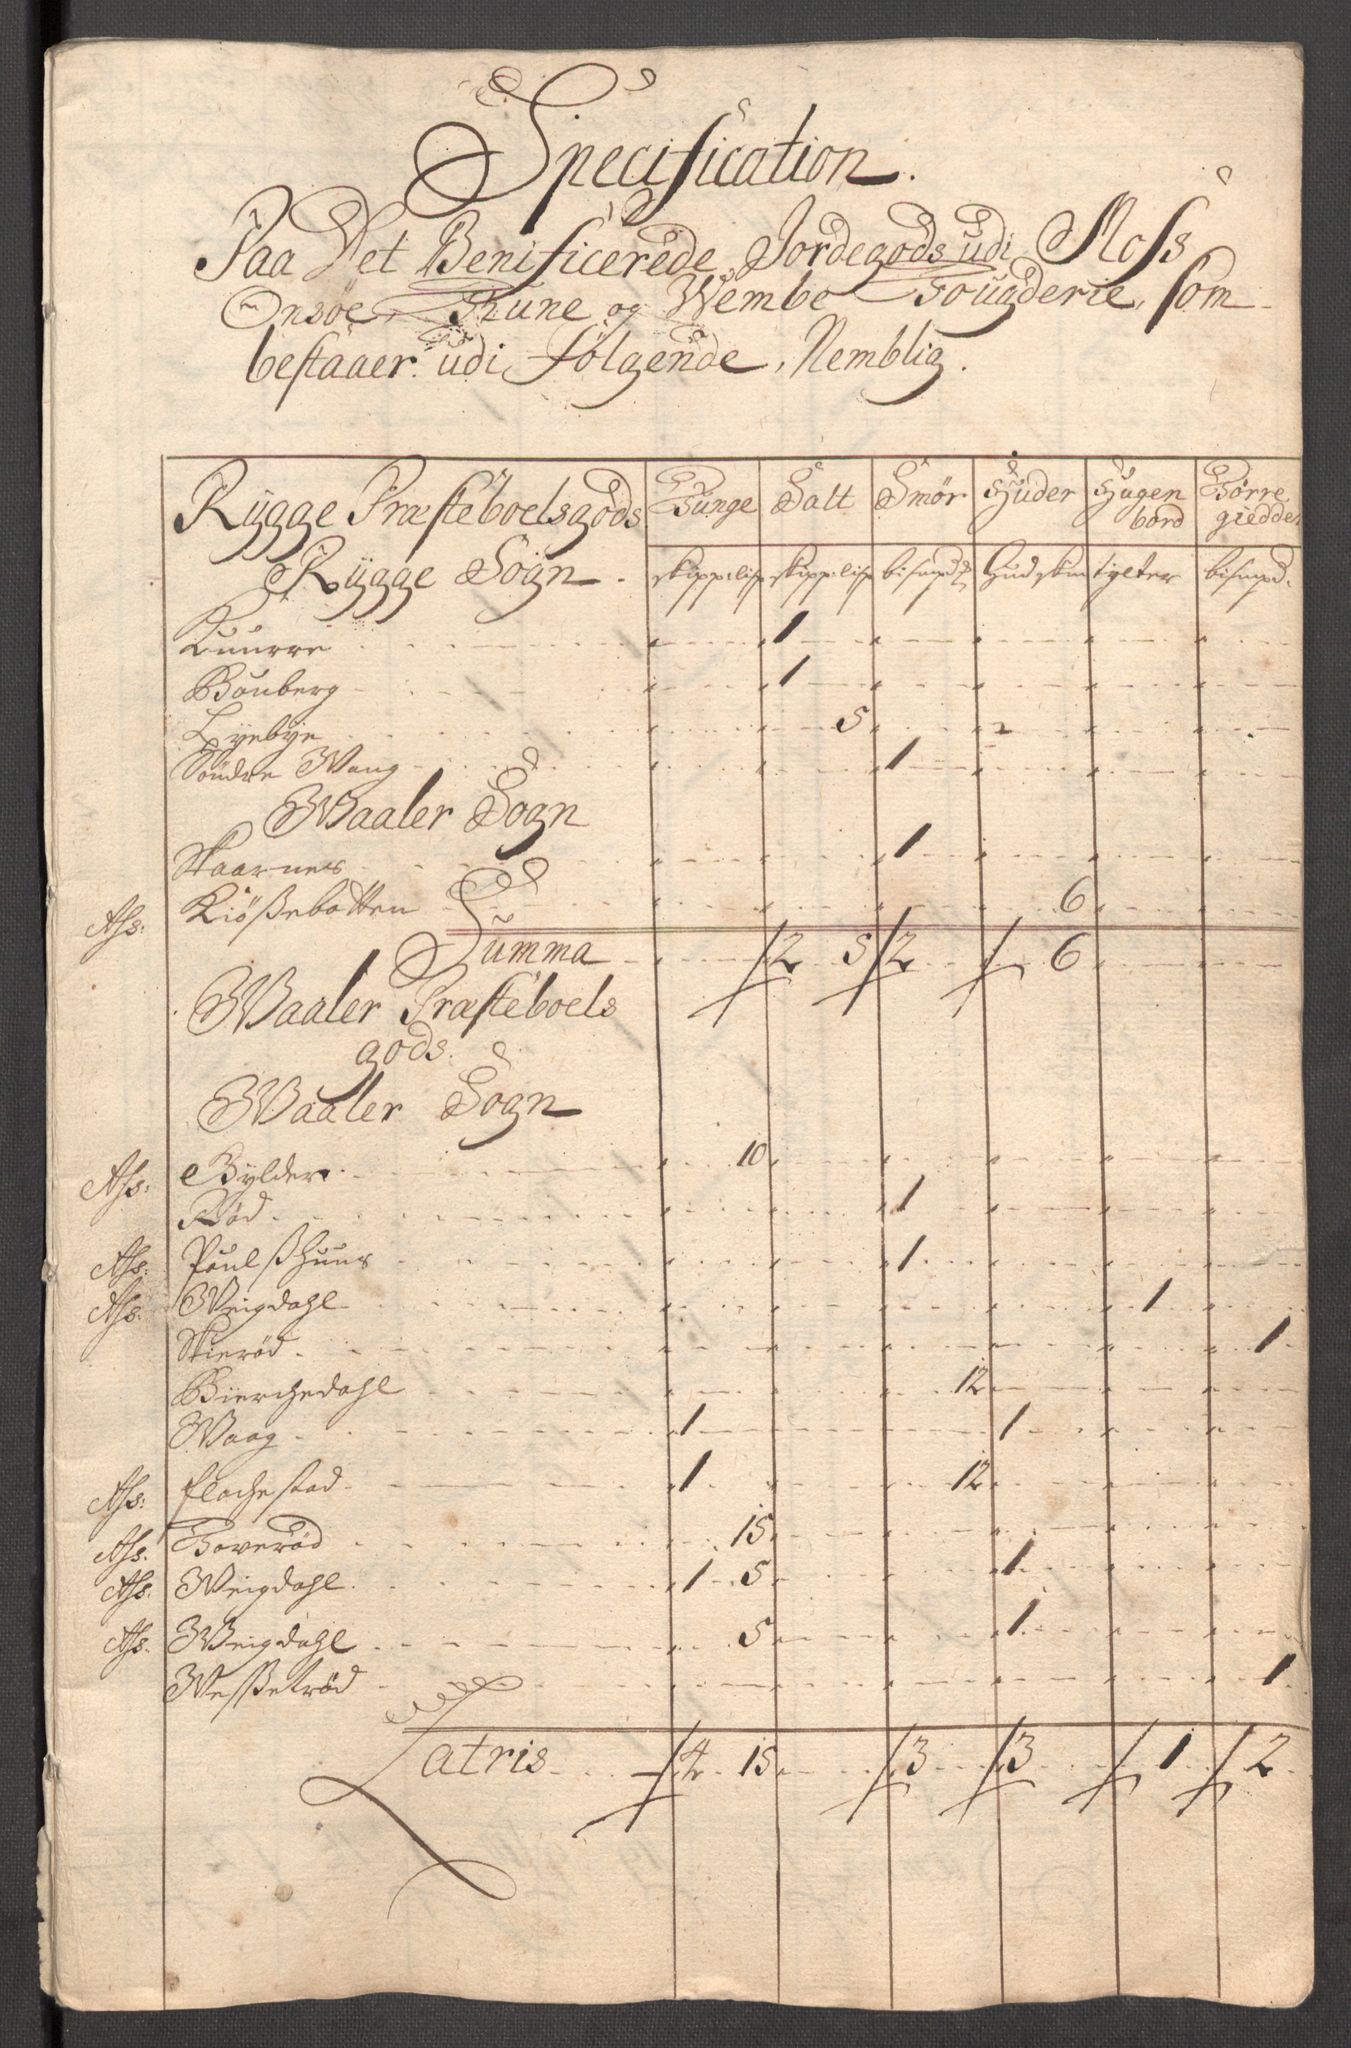 Specification.
Paa Det Benificerede Jordegods udi Moss
Onsøe, Thune og Wembe Fougderie, som
bestaaer udi Følgende, Nemblig.
Rÿgge Præsteboelsgods Tunge Salt Smör Huder Hugen bord Törre giedder
Rÿgge Sogn. skipp: lisp skipp: lisp bismpd Hud skin tylter bismpd.
Kuurre 1
Bouberg 1
Lyebye 5
Söndre Wang 1
Waaler Sogn
Skaarnes 1
Ahs: Kiößebotten 6
Summa 2 5 2 6
Waaler Præsteboels
gods.
Waaler Sogn
Ahs: Bylder 10
Röd 1
Ahs: Poulßhuus 1
Ahs: Weigdahl 1
Skieröd 1
Bierchedahl 12
Waag 1 1
Ahs: flachestad 1 12
Ahs. Boveröd 15
Ahs. Weigdahl 1 5 1
Ahs. Weigdahl 5 1
Weßeltröd 1
Latris 4 15 3 3 1 2